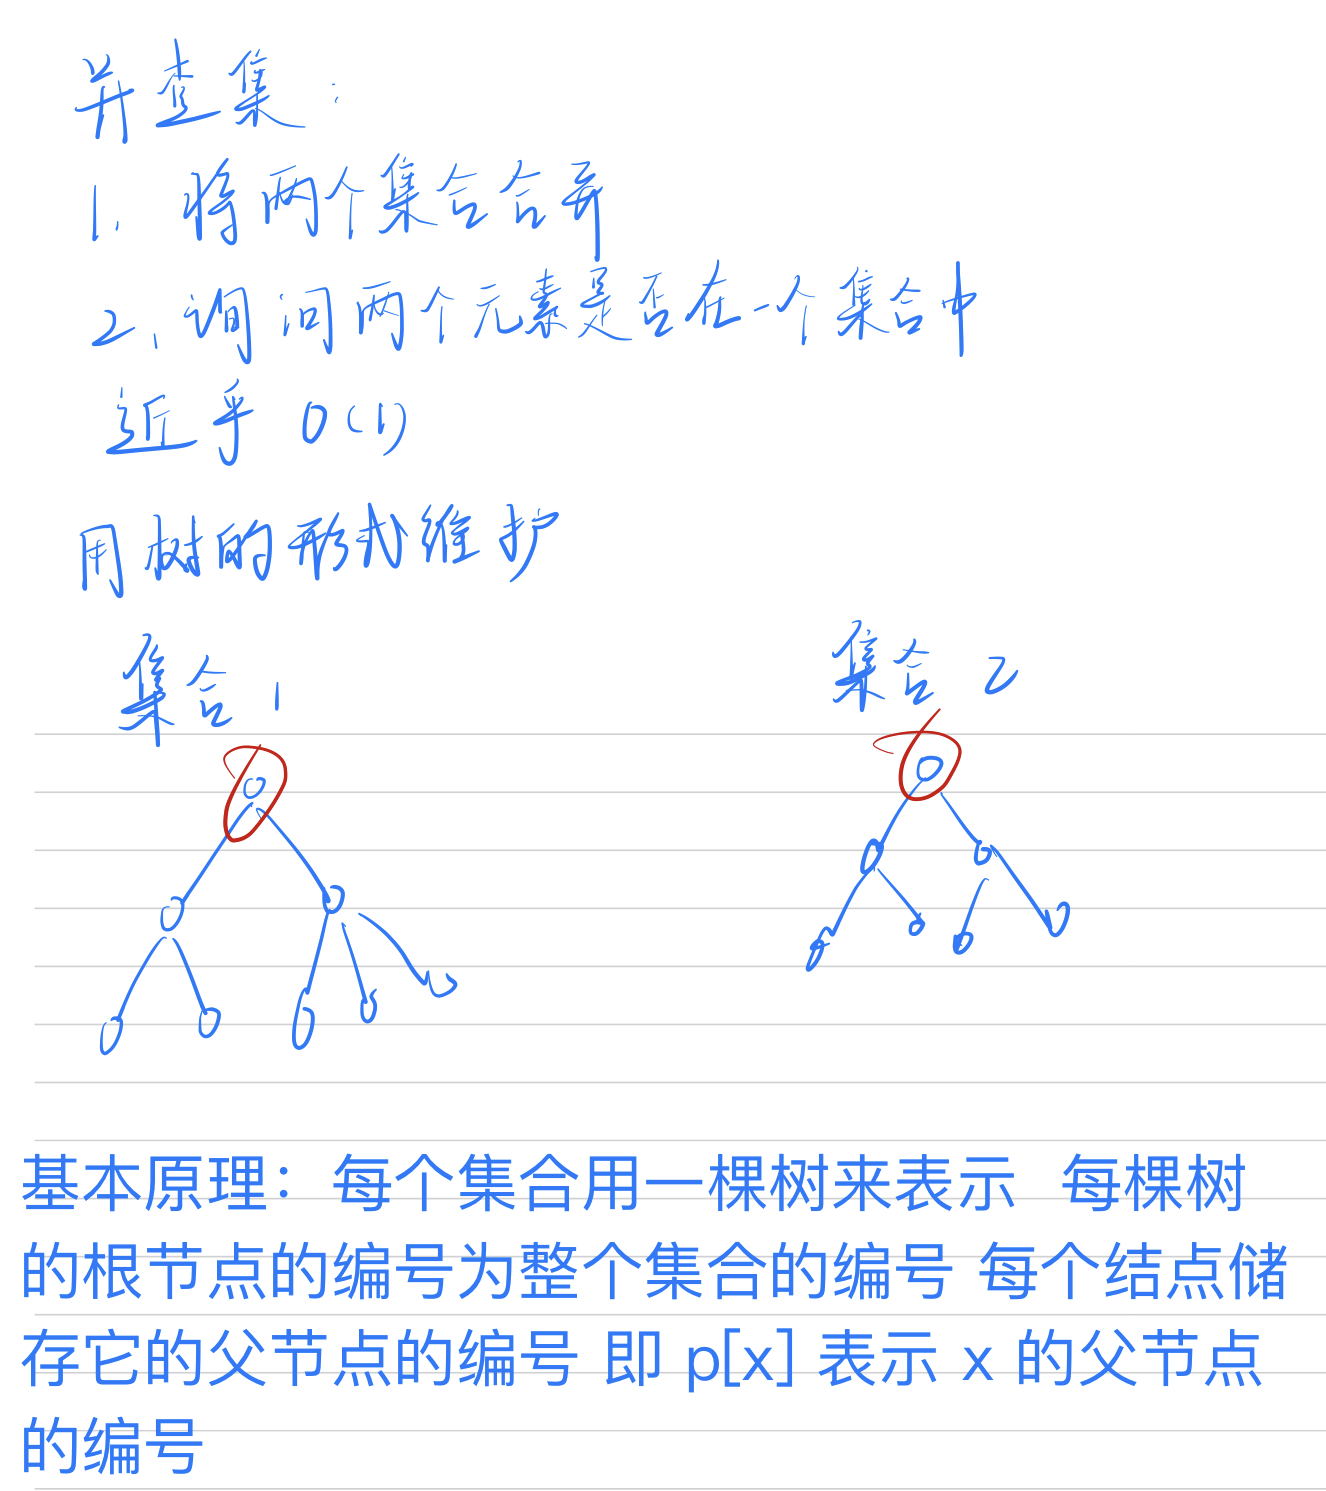 并查集：
1. 将两个集合合并
2. 询问两个元素是否在一个集合中
近乎 O(1)
用树的形式维护
集合 1
集合 2
基本原理：每个集合用一棵树来表示 每棵树
的根节点的编号为整个集合的编号 每个结点储
存它的父节点的编号 即 p[x] 表示 x 的父节点
的编号